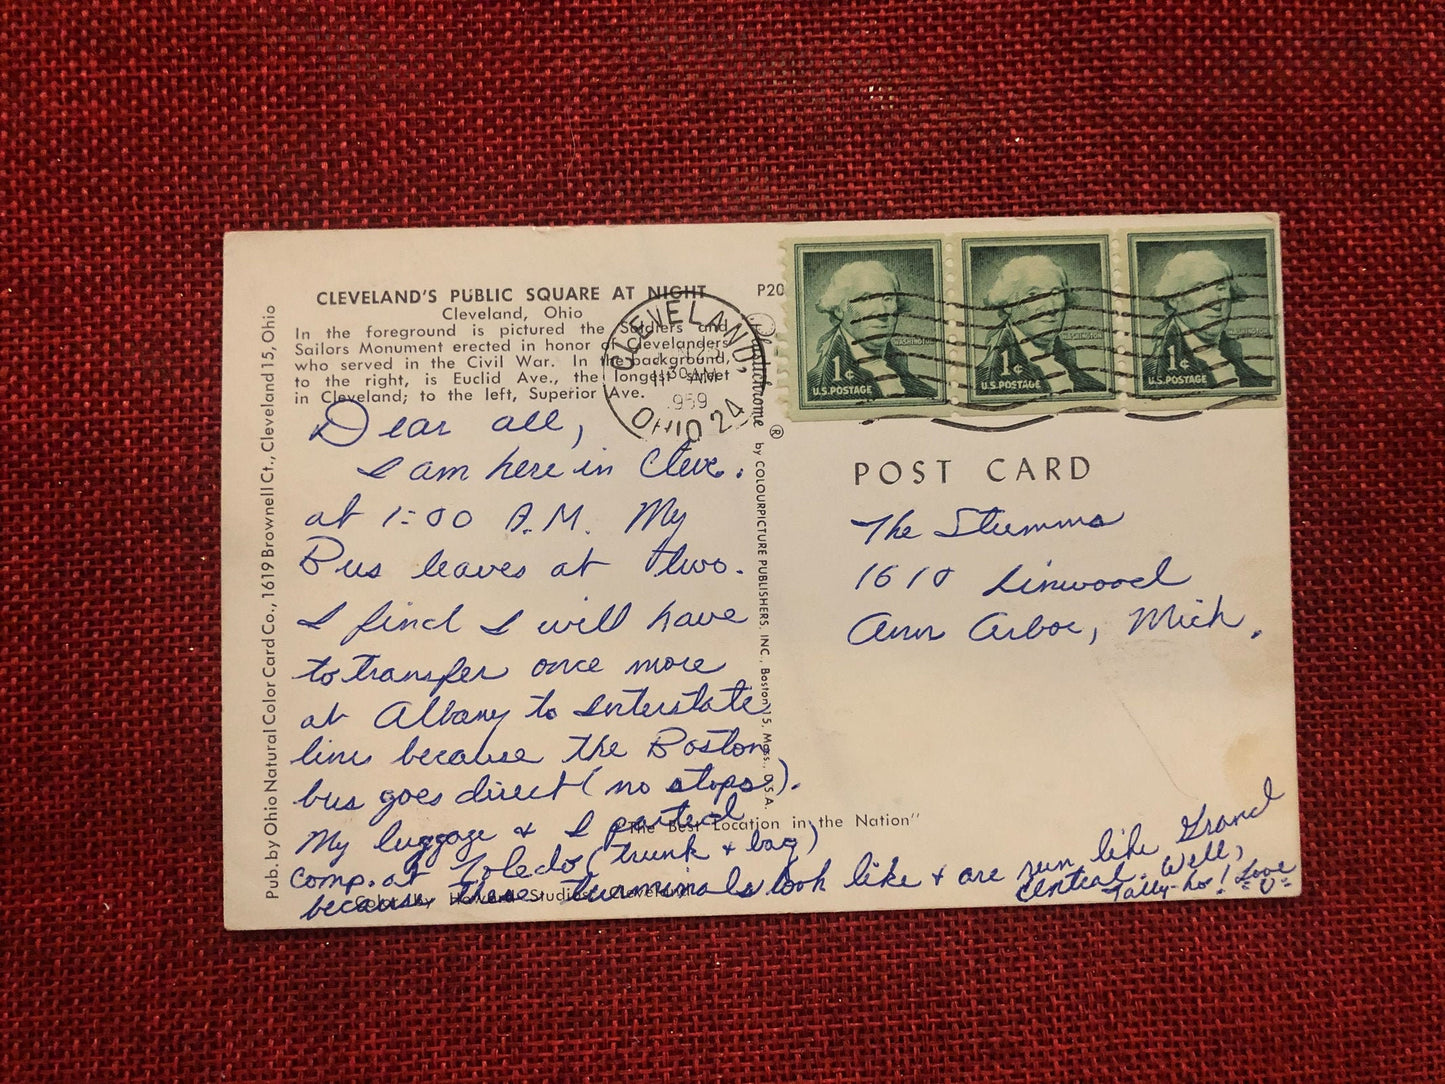 CLEVELAND'S PUBLIC SQUARE AT NIGHT
Cleveland, Ohio
In the foreground is pictured the Soldiers and
Sailors Monument erected in honor of Clevelanders
who served in the Civil War. In the background,
to the right, is Euclid Ave., the longest street
in Cleveland; to the left, Superior Ave.
Dear all,
I am here in Cleve.
at 1:00 A.M. My
Bus leaves at two.
I find I will have
to transfer once more
at Albany to Interstate
line because the Boston
bus goes direct (no stops).
My luggage & I parted
comp. at Toledo (trunk & bag)
because these terminals look like & are run like Grand
Central. Well,
Tally-ho! Love
"The Best Location in the Nation"
Color by Studios, Cleveland
Pub. by Ohio Natural Color Card Co., 1619 Brownell Ct., Cleveland 15, Ohio
P20
Plastichrome ®
by COLOURPICTURE PUBLISHERS, INC., Boston 15, Mass., U.S.A.
CLEVELAND,
OHIO 24
30 AM
1959
WASHINGTON
1¢
U.S. POSTAGE
WASHINGTON
1¢
U.S. POSTAGE
WASHINGTON
1¢
U.S. POSTAGE
POST CARD
The Stumms
1610 Linwood
Ann Arbor, Mich.